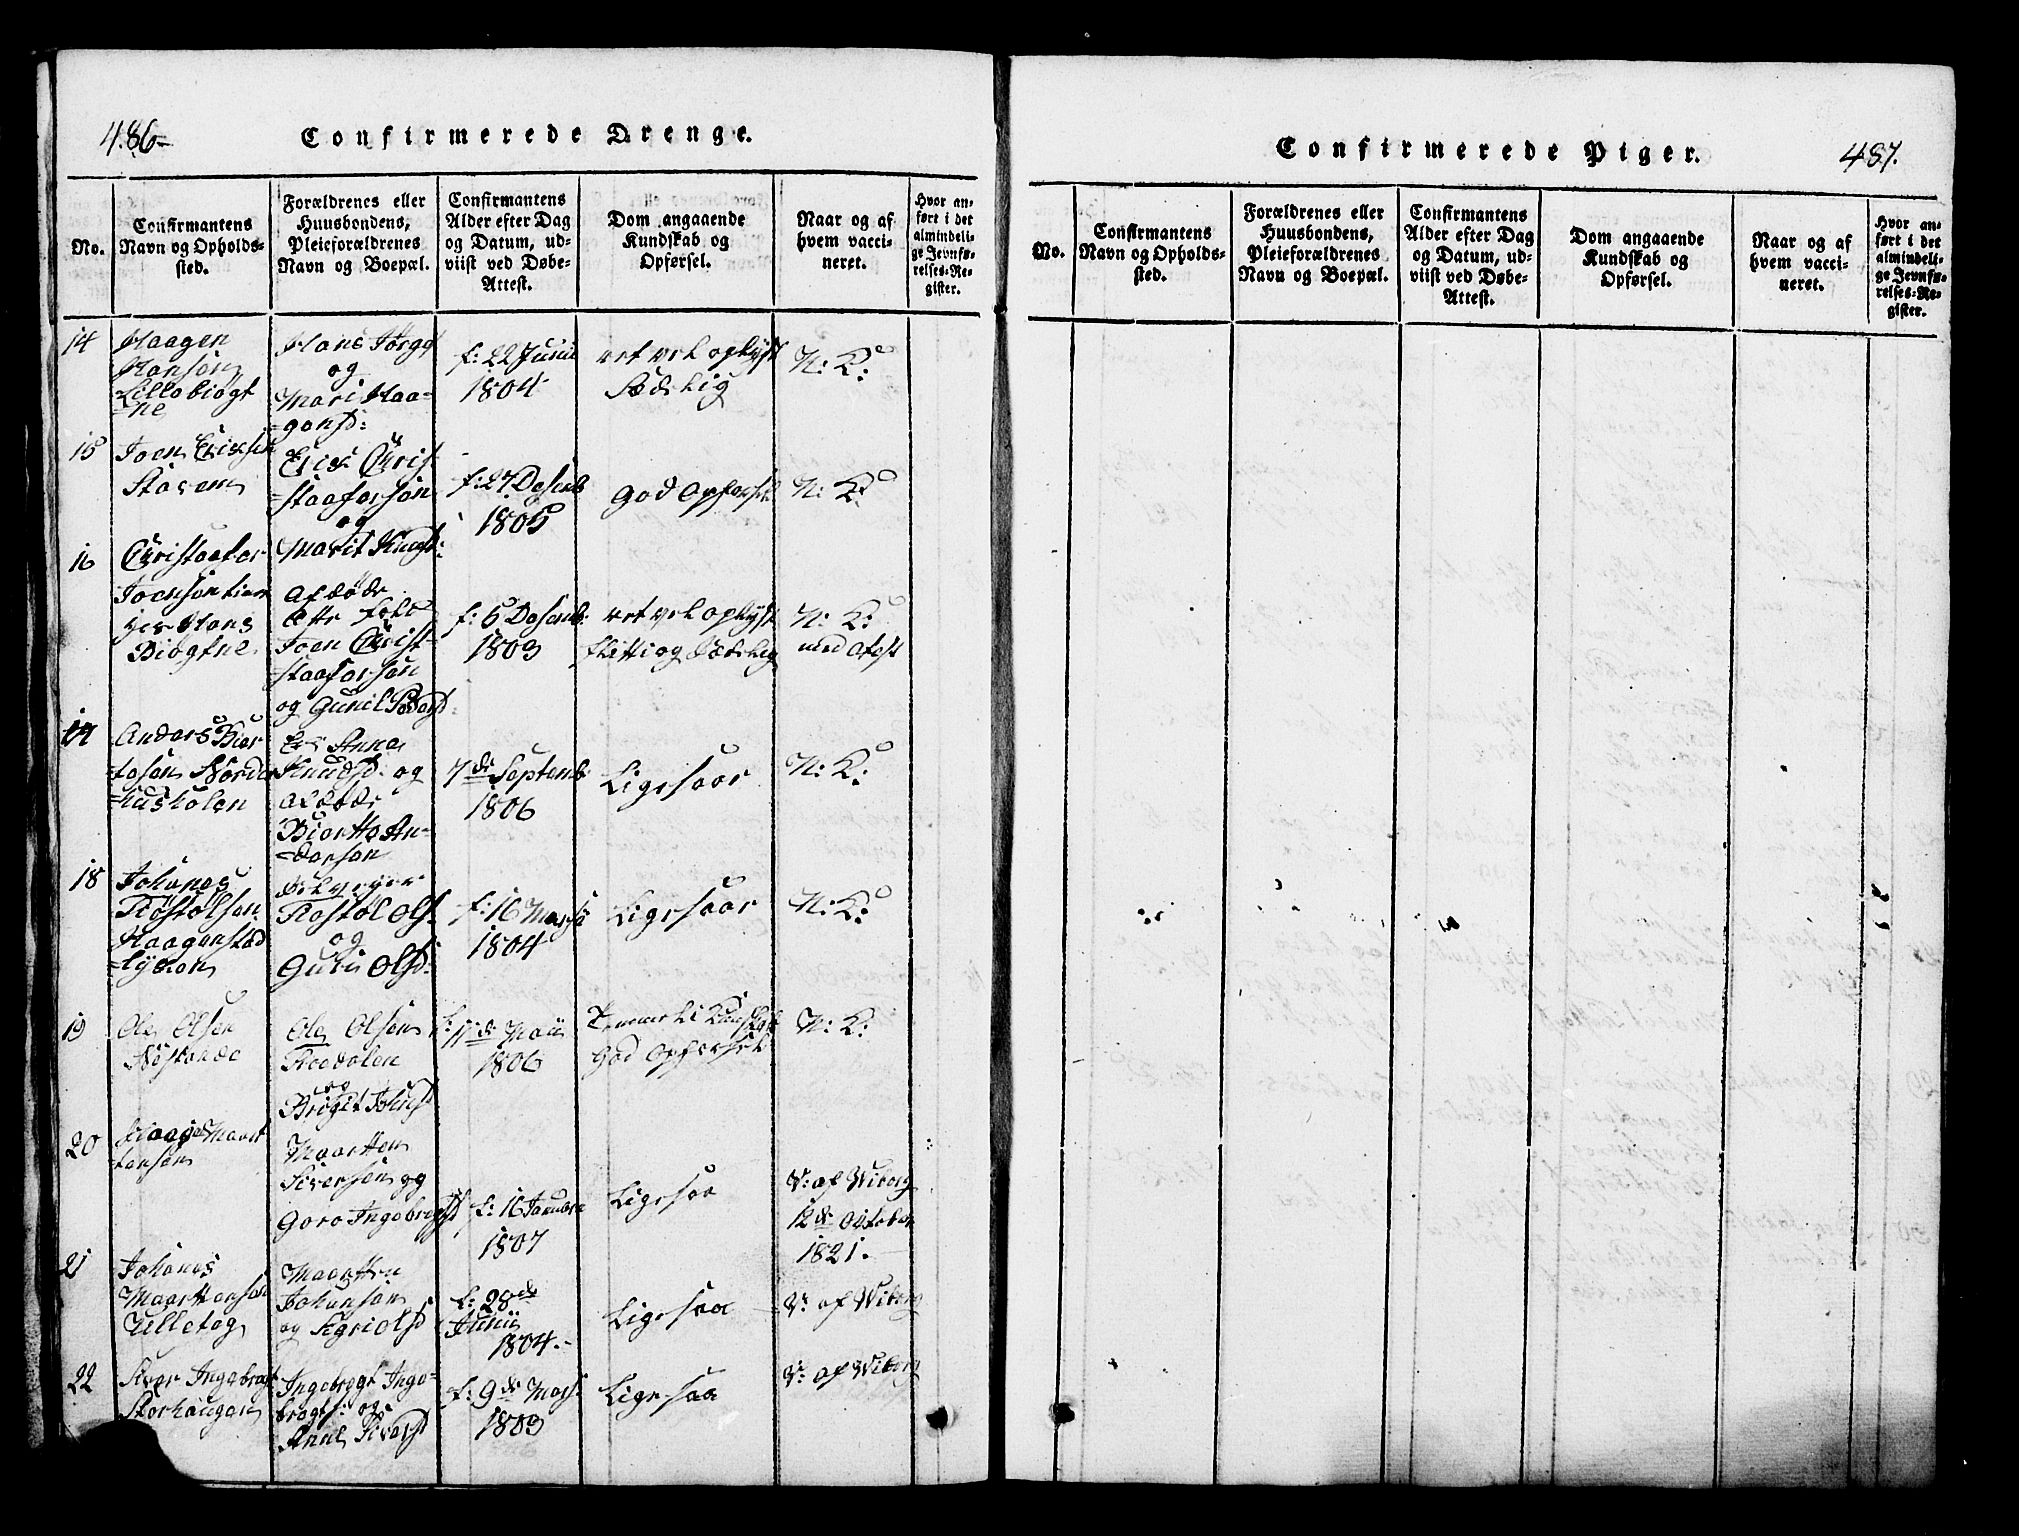 486
Confirmerede Drenge.
No.
Confirmantens
Navn og Opholds-
sted.
Forældrenes eller
Huusbondens,
Pleieforældrenes
Navn og Boepæl.
Confirmantens
Alder efter Dag
og Datum, ud-
viist ved Døbe-
Attest.
Dom angaaende
Kundskab og
Opførsel.
Naar og af
hvem vacci-
neret.
Hvor an-
ført i det
almindeli-
ge Jevnfø-
relses-Re-
gister.
14
Haagen
Hansøn
Hans Jørg
og
Mari Haa-
gensd:
f: 22 Junii
1804
ret vel oplyst
Sædelig
N: K:
15
Joen Ericksen
Staven
Erick Christ
=staafersøn
og
Marit Knudsd:
f: 27 Desemb
1805
God Opførsel
N: K:
16
Christoffer
Joensøn
Hans
Biøgtne
Afdøde
Joen Christ
=staafersøn
og Gunil Pedersd:
f: 5 Desemb:
1803
ret vel oplyst
flittig og Sædelig
N: K:
med Atest
17
Anders Bier
tesøn Nordre
Anna
Knudsd: og
Afdøde
Biertte An-
dersøn
7de Septemb:
1806
Ligesaar
N: K:
18
Johanes
Røstølsøn
Haagenstad
Rostøl Ols:
og
Guri Olsd:
f: 16 Marsii
1804
Ligesaar
N: K:
19
Ole Olsen
Ole Olsøn
og
Brigit Johnsd
f: 11de Maii
1806
God Opførsel
N: K:
20
Haagen Maart
tensøn
Maartten
Siversøn og
Goro Ingebregtsd
f: 16 Januari
1807
Ligesaa
V: af Wiborg
12de October
1821.
21
Johanes
Maarttensøn
Ulletog
Maartten
Johansøn
og Sigri Olsd
f: 28de
Junii
1804.-
Ligesaa
V: af Wiborg
22
Siver Ingebregt
Storhaugen
Ingebregt Inge-
bregts: og
Anne Siversd
f: 9de Mars:
1803
Ligesaa
V: af Wiborg
Confirmerede Piger.
487.
No.
Confirmantens
Navn og Opholds-
sted.
Forældrenes eller
Huusbondens,
Pleieforældrenes
Navn og Boepæl.
Confirmantens
Alder efter Dag
og Datum, ud-
viist ved Døbe-
Attest.
Dom angaaende
Kundskab og
Opførsel.
Naar og af
hvem vacci-
neret.
Hvor an-
ført i det
almindeli-
ge Jevnfø-
relses-Re-
gister.